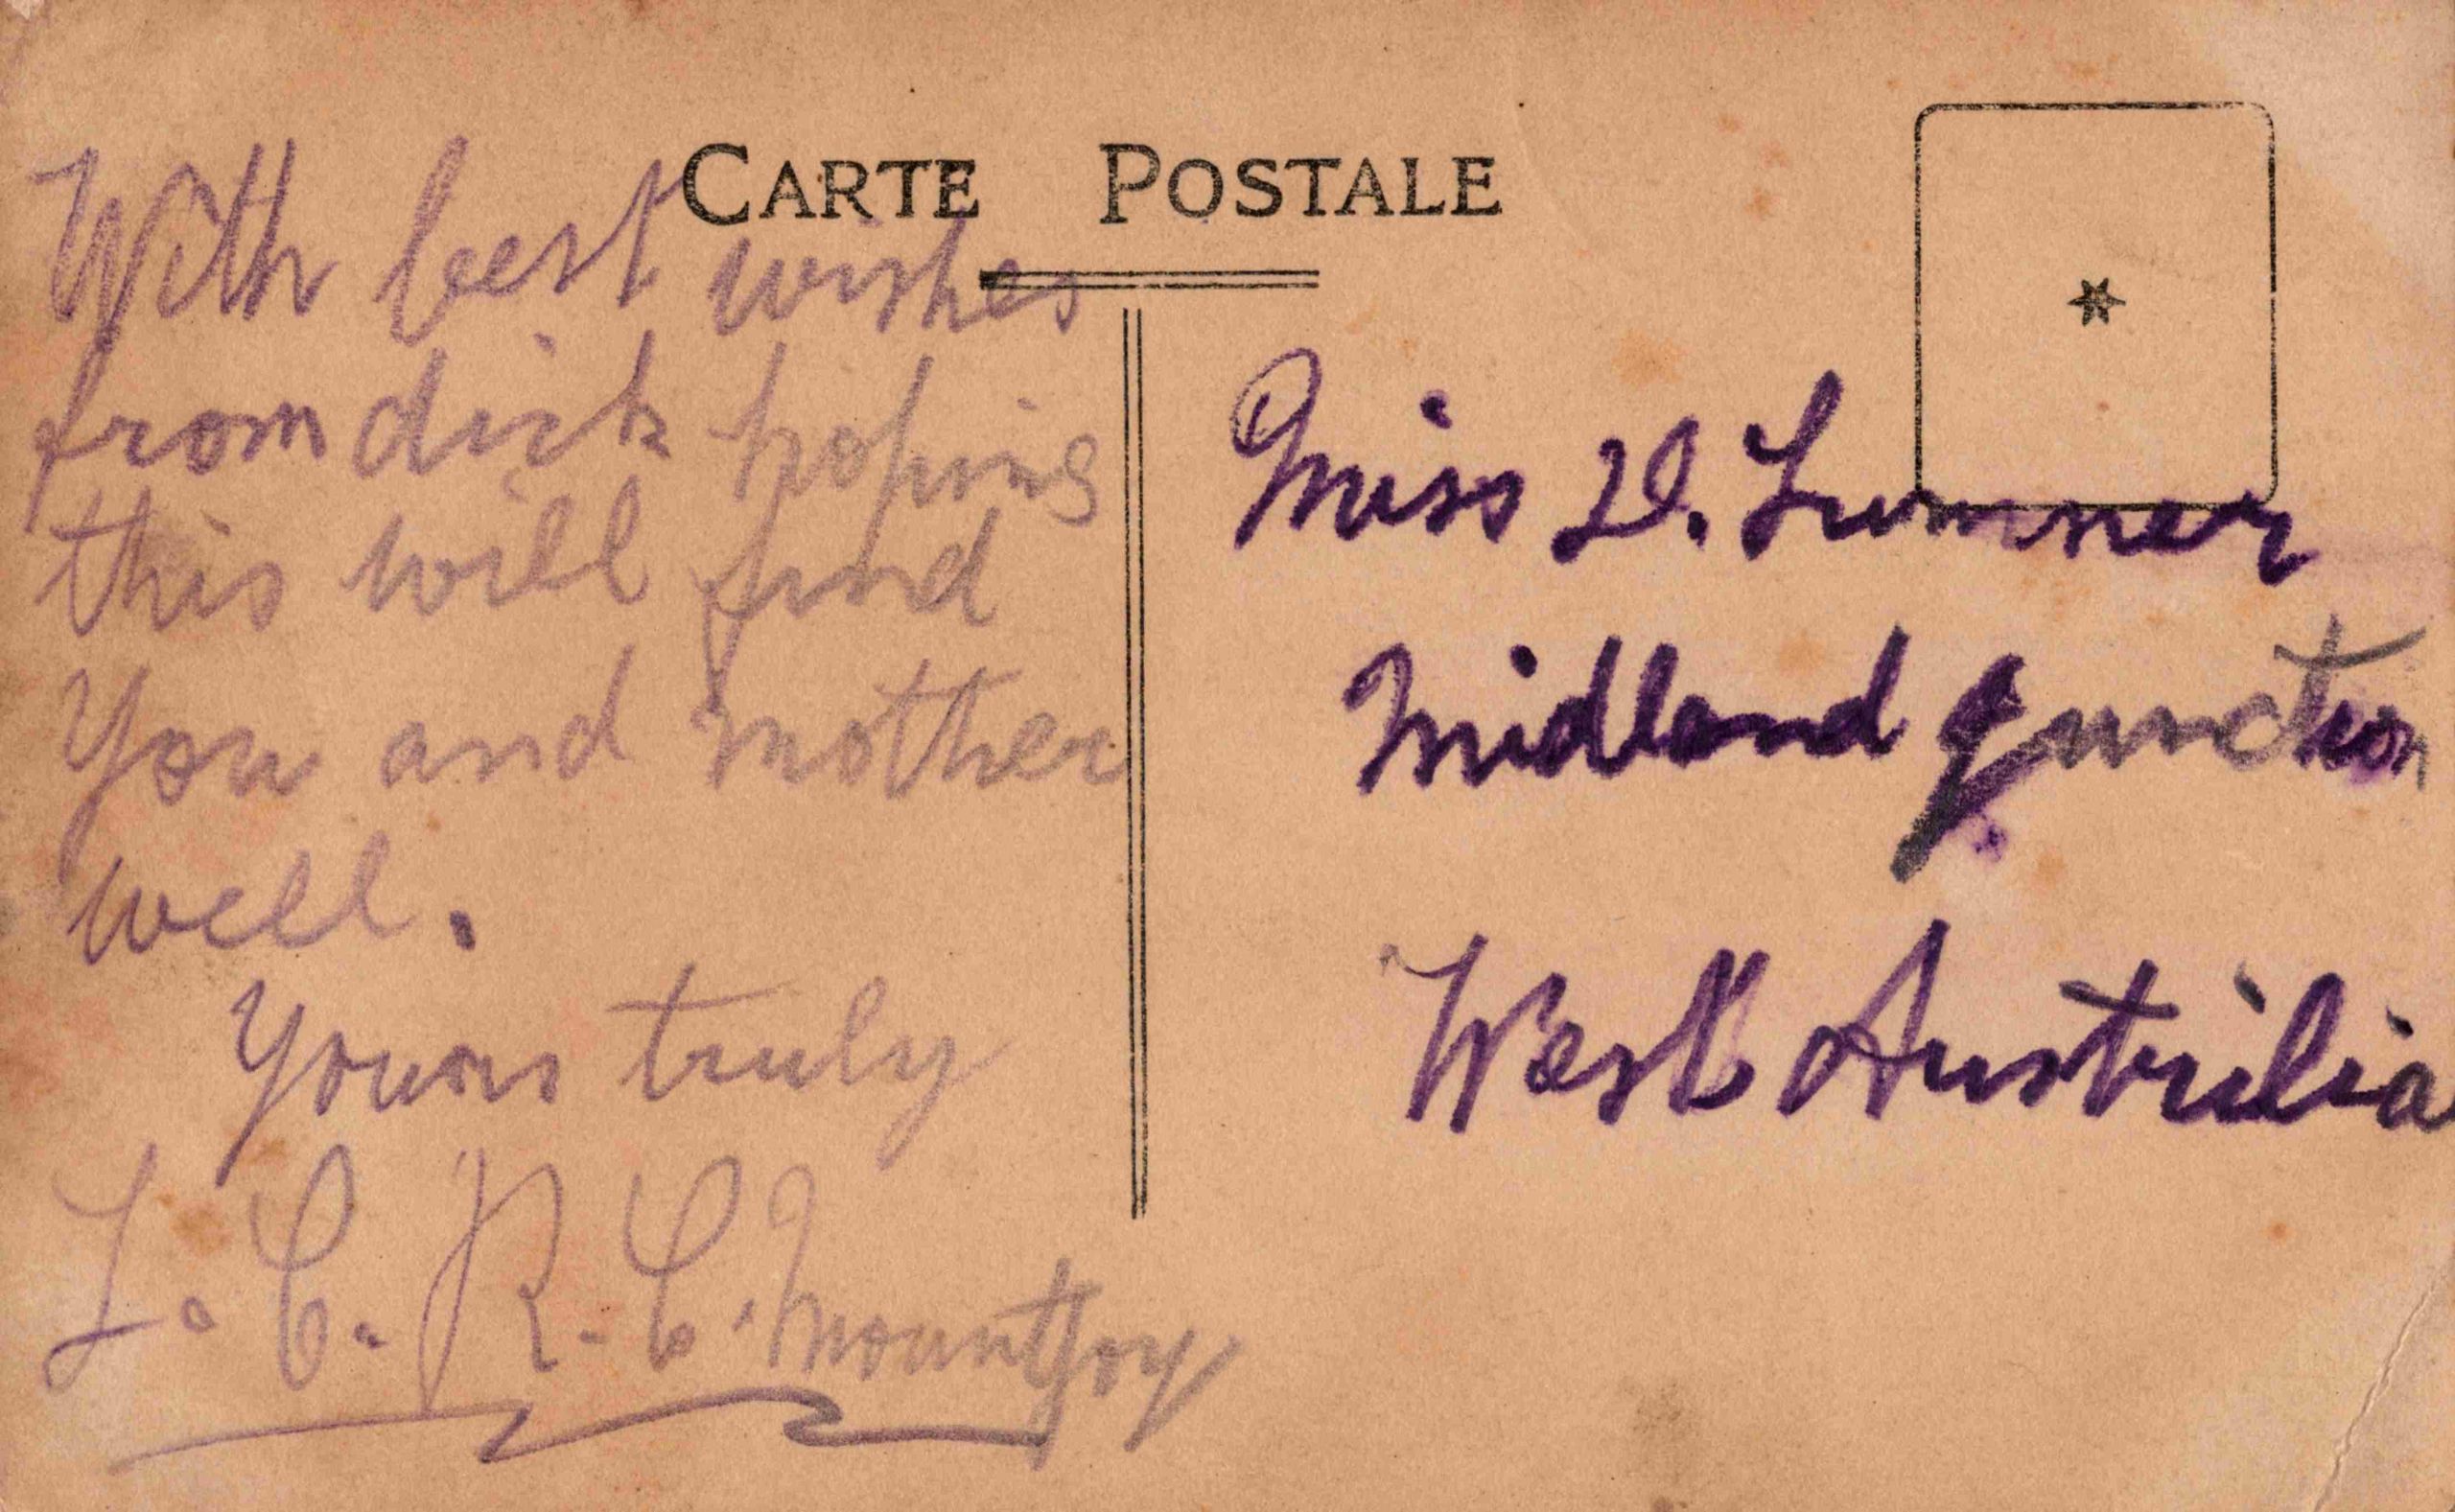 CARTE POSTALE
With best wishes
from dick hoping
this will find
you and mother
well.
Yours truly
L. C. R. C. Mountjoy
Miss D. Sumner
Midland Junction
West Austrilia